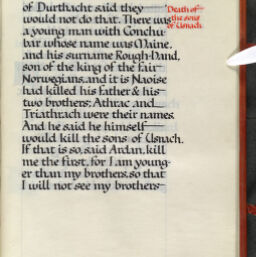 of Durthacht said they
would not do that. There was
a young man with Conchu
bar whose name was Maine,
and his surname Rough-Hand,
son of the king of the fair
Norwegians, and it is Naoise
had killed his father & his
two brothers; Athrac and
Triathrach were their names.
And he said he himself
would kill the sons of Usnach.
If that is so, said Ardan, kill
me the first, for I am young-
er than my brothers, so that
I will not see my brothers
Death of
the sons
of Usnach